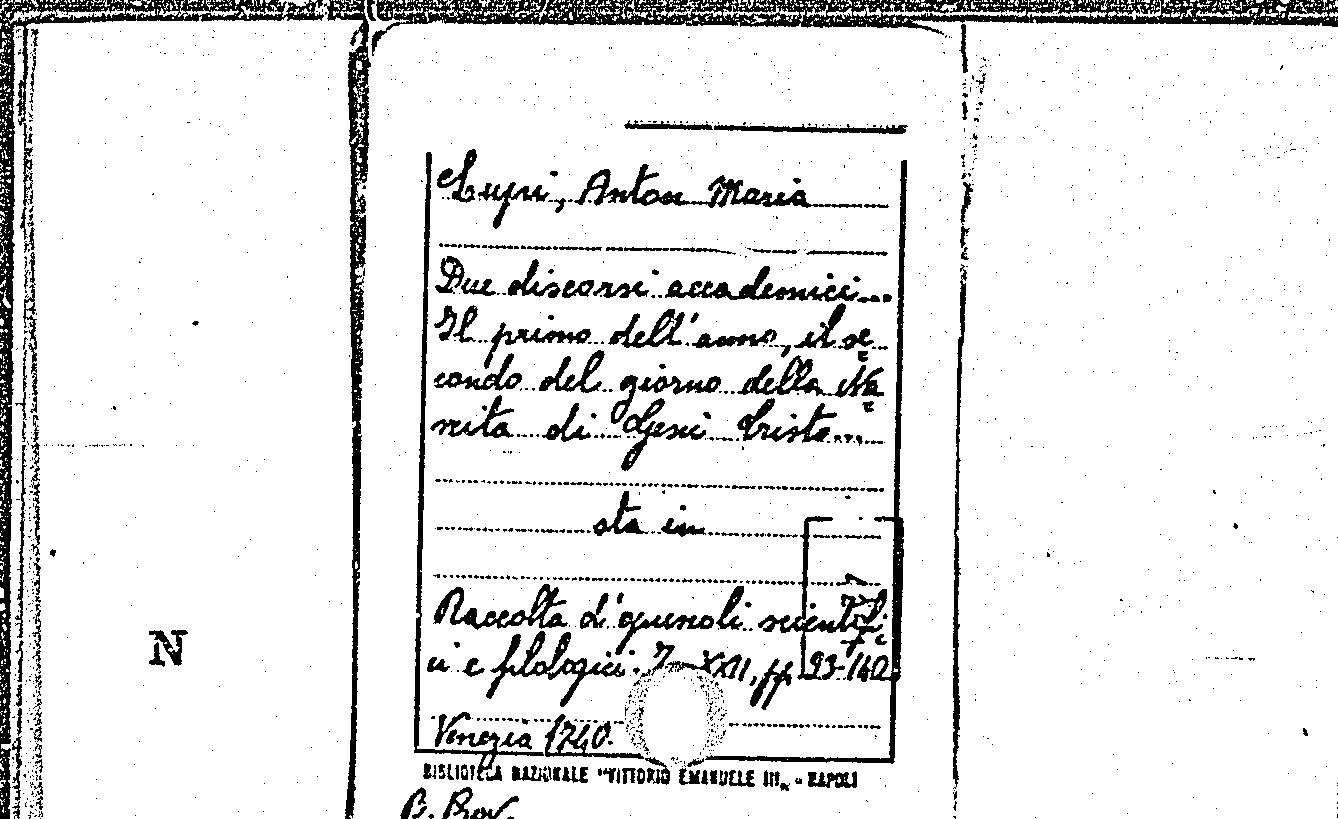 Lupi, Anton Maria
Due discorsi accademici...
Il primo dell'anno, il se
condo del giorno della Na
scita di Gesù Cristo...
sta in
Raccolta d'opuscoli scientifi
ci e filologici. T. XXII, pp. 93-140
Venezia 1740.
N
BIBLIOTECA NAZIONALE "VITTORIO EMANUELE III„ - NAPOLI
B. Prov.